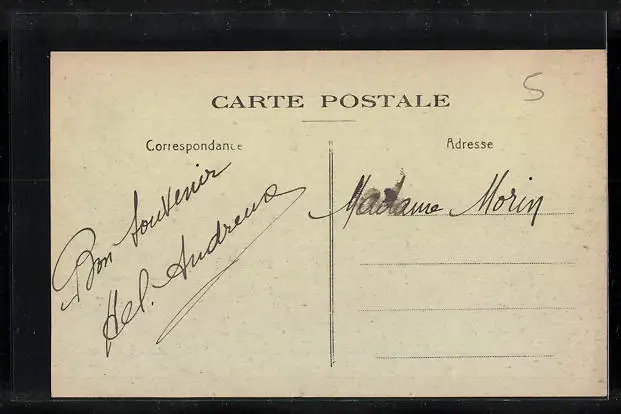 CARTE POSTALE
5
Correspondance
Adresse
Bon Souvenir
Hel. Andreens
Madame Morin